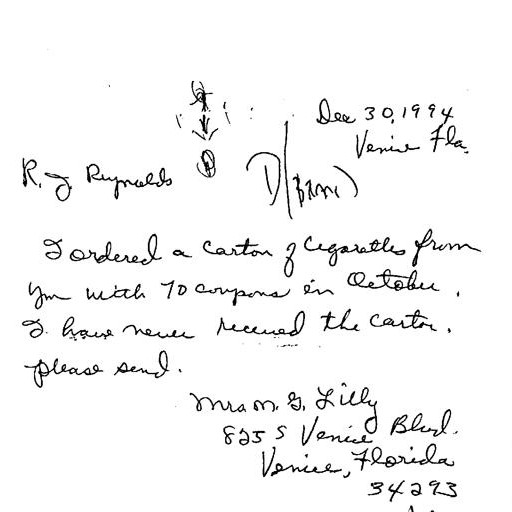 Dec 30, 1994
Venice Fla.
R. J. Reynolds
I ordered a carton of Cigarettes from
you with 70 coupons in October.
I have never received the carton.
please send.
Mrs M. G. Lilly
825 S Venice Blvd.
Venice, Florida
34293